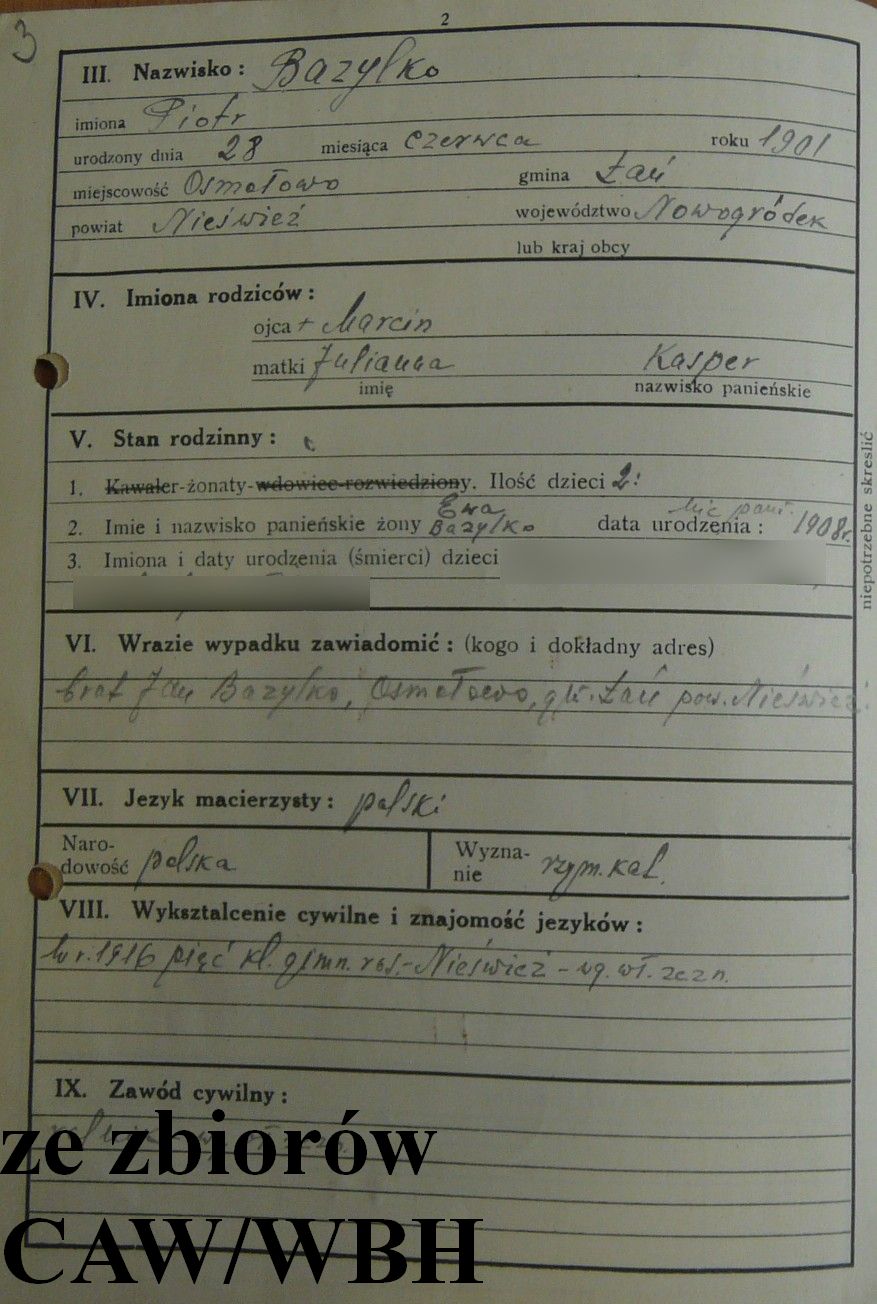 3
2
III. Nazwisko: Bazylko
imiona Piotr
urodzony dnia 28 miesiąca czerwca roku 1901
miejscowość Osmołowo gmina Łań
powiat Nieśwież województwo Nowogródek
lub kraj obcy
IV. Imiona rodziców:
ojca + Marcin
matki Julianna Kasper
imię nazwisko panieńskie
V. Stan rodzinny:
1. Kawaler-żonaty-wdowiec-rozwiedziony. Ilość dzieci 2:
nie pam.
2. Imie i nazwisko panieńskie żony Ewa Bazylko data urodzenia: 1908r.
3. Imiona i daty urodzenia (śmierci) dzieci
niepotrzebne skreslić
VI. Wrazie wypadku zawiadomić: (kogo i dokładny adres)
brat Jan Bazylko, Osmołowo, gm. Łań pow. Nieśwież
VII. Jezyk macierzysty: polski
Naro-
dowość polska
Wyzna-
nie rzym. kat.
VIII. Wyksztalcenie cywilne i znajomość jezyków:
w r. 1916 pięć kl. gimn. ros.-Nieśwież - wg. wł. zezn.
IX. Zawód cywilny:
ze zbiorów
CAW/WBH